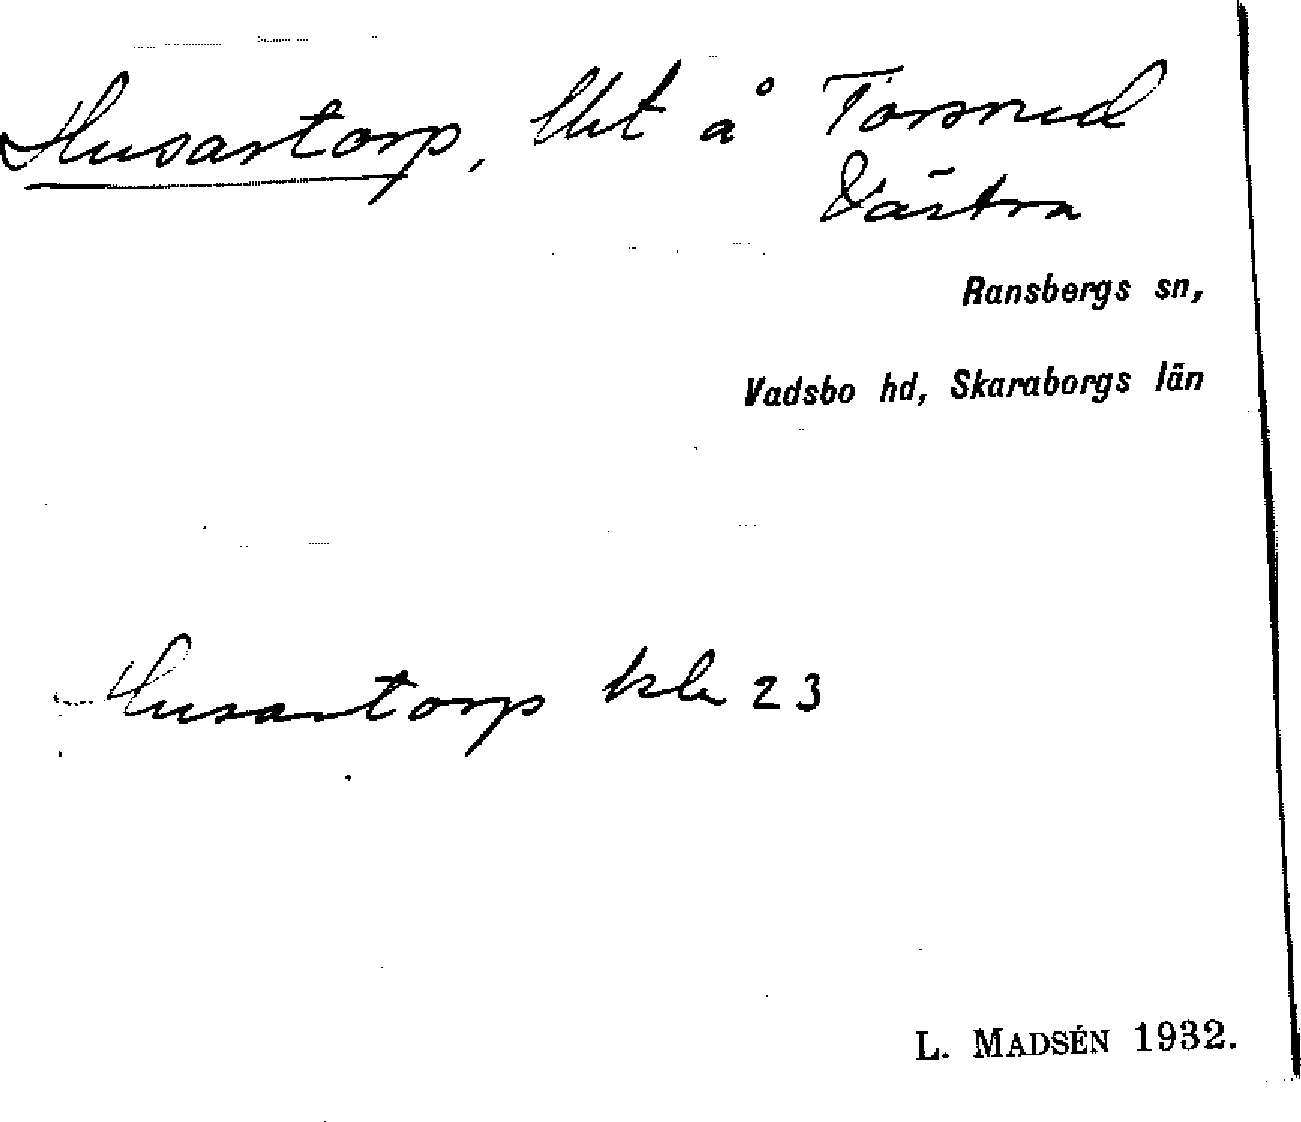 Husartorp, lht å Torsrud
Västra
Ransbergs sn,
Vadsbo hd, Skaraborgs län
Husartorp kla 23
L. MADSÉN 1932.